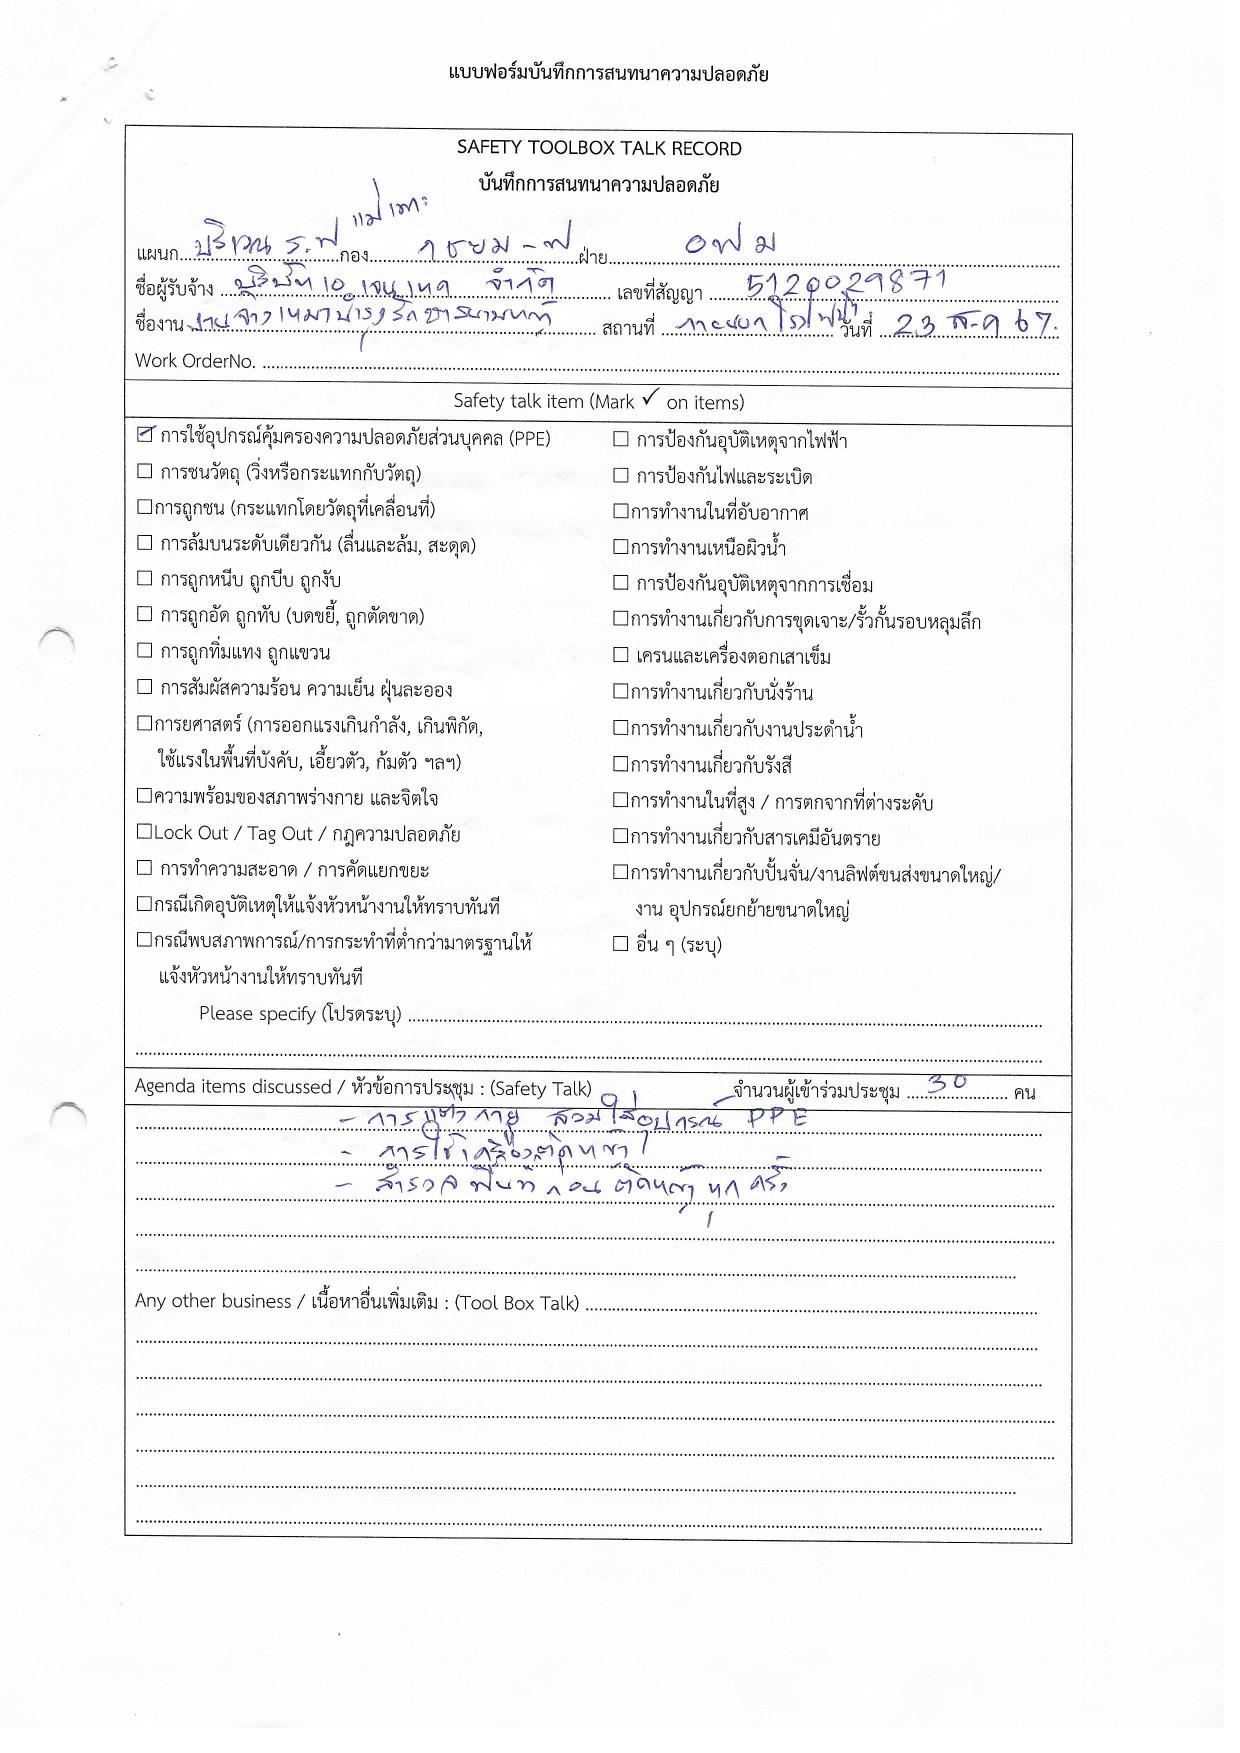 แบบฟอร์มบันทึกการสนทนาความปลอดภัย
SAFETY TOOLBOX TALK RECORD
บันทึกการสนทนาความปลอดภัย
แม่เมาะ
แผนก บริเวณ ร.ฟ กอง กชยม-ฟ ฝ่าย อฟม
ชื่อผู้รับจ้าง บริษัท เจนเทค จำกัด เลขที่สัญญา 5120029871
ชื่องาน งานจ้างเหมาบำรุงรักษาสนามหญ้า สถานที่ ภายนอกโรงไฟฟ้า วันที่ 23 ส.ค 67.
Work OrderNo.
Safety talk item (Mark ✓ on items)
☑ การใช้อุปกรณ์คุ้มครองความปลอดภัยส่วนบุคคล (PPE) ☐ การป้องกันอุบัติเหตุจากไฟฟ้า
☐ การชนวัตถุ (วิ่งหรือกระแทกกับวัตถุ) ☐ การป้องกันไฟและระเบิด
☐การถูกชน (กระแทกโดยวัตถุที่เคลื่อนที่) ☐การทำงานในที่อับอากาศ
☐ การล้มบนระดับเดียวกัน (ลื่นและล้ม, สะดุด) ☐การทำงานเหนือผิวน้ำ
☐ การถูกหนีบ ถูกบีบ ถูกงับ ☐ การป้องกันอุบัติเหตุจากการเชื่อม
☐ การถูกอัด ถูกทับ (บดขยี้, ถูกตัดขาด) ☐การทำงานเกี่ยวกับการขุดเจาะ/รั้วกั้นรอบหลุมลึก
☐ การถูกทิ่มแทง ถูกแขวน ☐ เครนและเครื่องตอกเสาเข็ม
☐ การสัมผัสความร้อน ความเย็น ฝุ่นละออง ☐การทำงานเกี่ยวกับนั่งร้าน
☐การยศาสตร์ (การออกแรงเกินกำลัง, เกินพิกัด, ☐การทำงานเกี่ยวกับงานประดำน้ำ
ใช้แรงในพื้นที่บังคับ, เอี้ยวตัว, ก้มตัว ฯลฯ) ☐การทำงานเกี่ยวกับรังสี
☐ความพร้อมของสภาพร่างกาย และจิตใจ ☐การทำงานในที่สูง / การตกจากที่ต่างระดับ
☐Lock Out / Tag Out / กฎความปลอดภัย ☐การทำงานเกี่ยวกับสารเคมีอันตราย
☐ การทำความสะอาด / การคัดแยกขยะ ☐การทำงานเกี่ยวกับปั้นจั่น/งานลิฟต์ขนส่งขนาดใหญ่/
☐กรณีเกิดอุบัติเหตุให้แจ้งหัวหน้างานให้ทราบทันที งาน อุปกรณ์ยกย้ายขนาดใหญ่
☐กรณีพบสภาพการณ์/การกระทำที่ต่ำกว่ามาตรฐานให้ ☐ อื่น ๆ (ระบุ)
แจ้งหัวหน้างานให้ทราบทันที
Please specify (โปรดระบุ)
Agenda items discussed / หัวข้อการประชุม : (Safety Talk) จำนวนผู้เข้าร่วมประชุม 30 คน
- การแต่งกาย สวมใส่อุปกรณ์ PPE
- การใช้เครื่องตัดหญ้า
- สำรวจพื้นที่ก่อนตัดหญ้าทุกครั้ง
Any other business / เนื้อหาอื่นเพิ่มเติม : (Tool Box Talk)